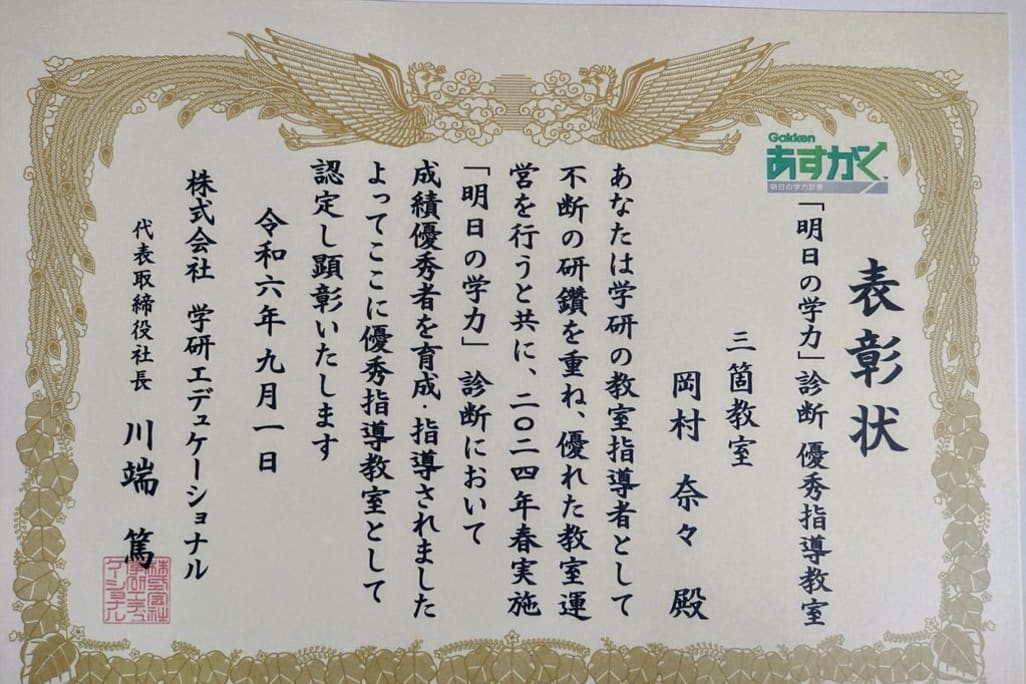 表彰状
Gakken
あすがく
明日の学力診断
「明日の学力」診断 優秀指導教室
三箇教室
岡村 奈々 殿
あなたは学研の教室指導者として
不断の研鑽を重ね、優れた教室運
営を行うと共に、二〇二四年春実施
「明日の学力」診断において
成績優秀者を育成・指導されました
よってここに優秀指導教室として
認定し顕彰いたします
令和六年九月一日
株式会社 学研エデュケーショナル
代表取締役社長 川端 篤
株式会社
学研エデュ
ケーショナル